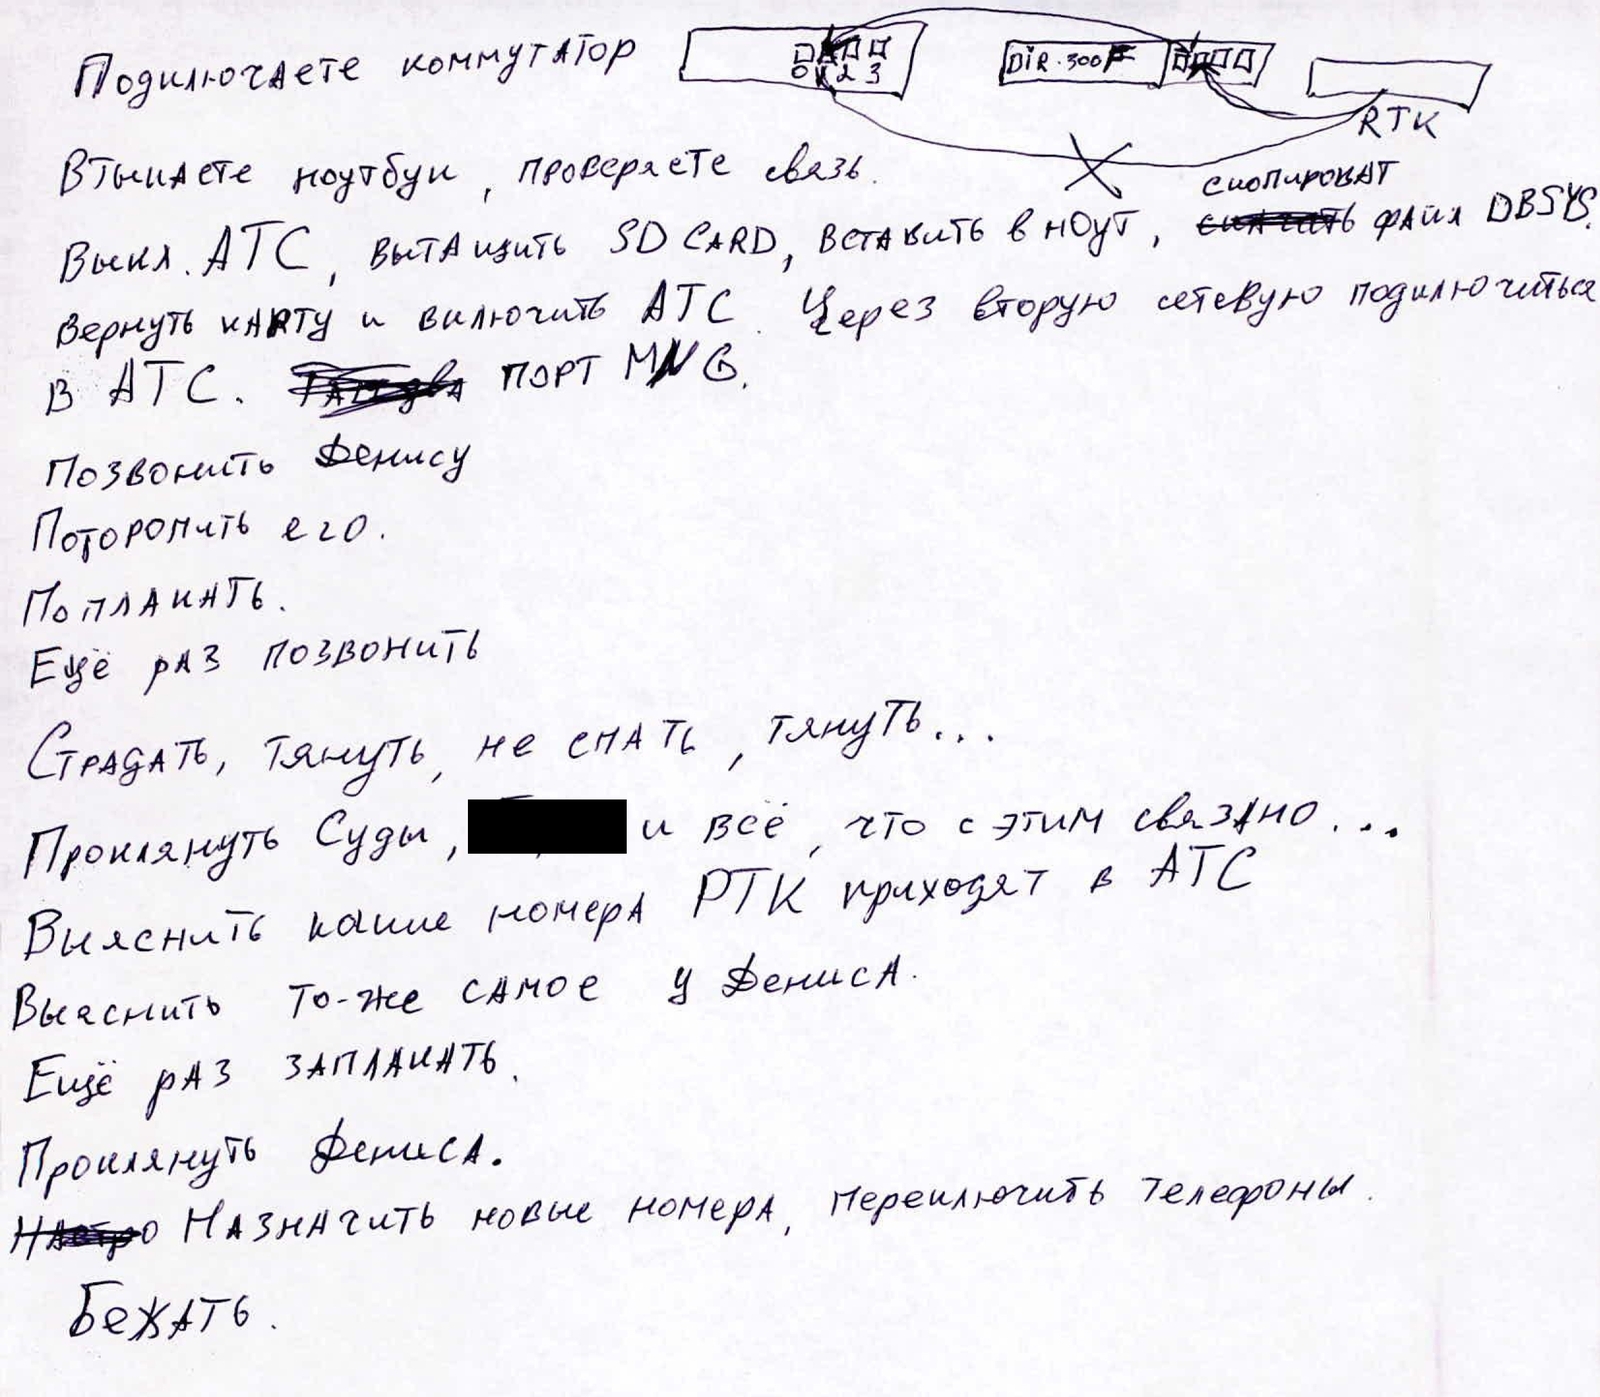 Подключаете коммутатор
0 1 2 3
DIR-300
RTK
Втыкаете ноутбук, проверяете связь.
скопироват
Выкл. АТС, вытащить SD CARD, вставить в ноут, скачать файл DBSYS.
вернуть карту и включить АТС. Через вторую сетевую подключиться
в АТС. порт MNG.
Позвонить Денису
Поторопить его.
Поплакать.
Ещё раз позвонить
Страдать, тянуть, не спать, тянуть...
Проклянуть Суды, и всё, что с этим связано...
Выяснить какие номера РТК приходят в АТС
Выяснить то-же самое у Дениса.
Ещё раз заплакать.
Проклянуть Дениса.
Назначить новые номера, переключить телефоны.
Бежать.